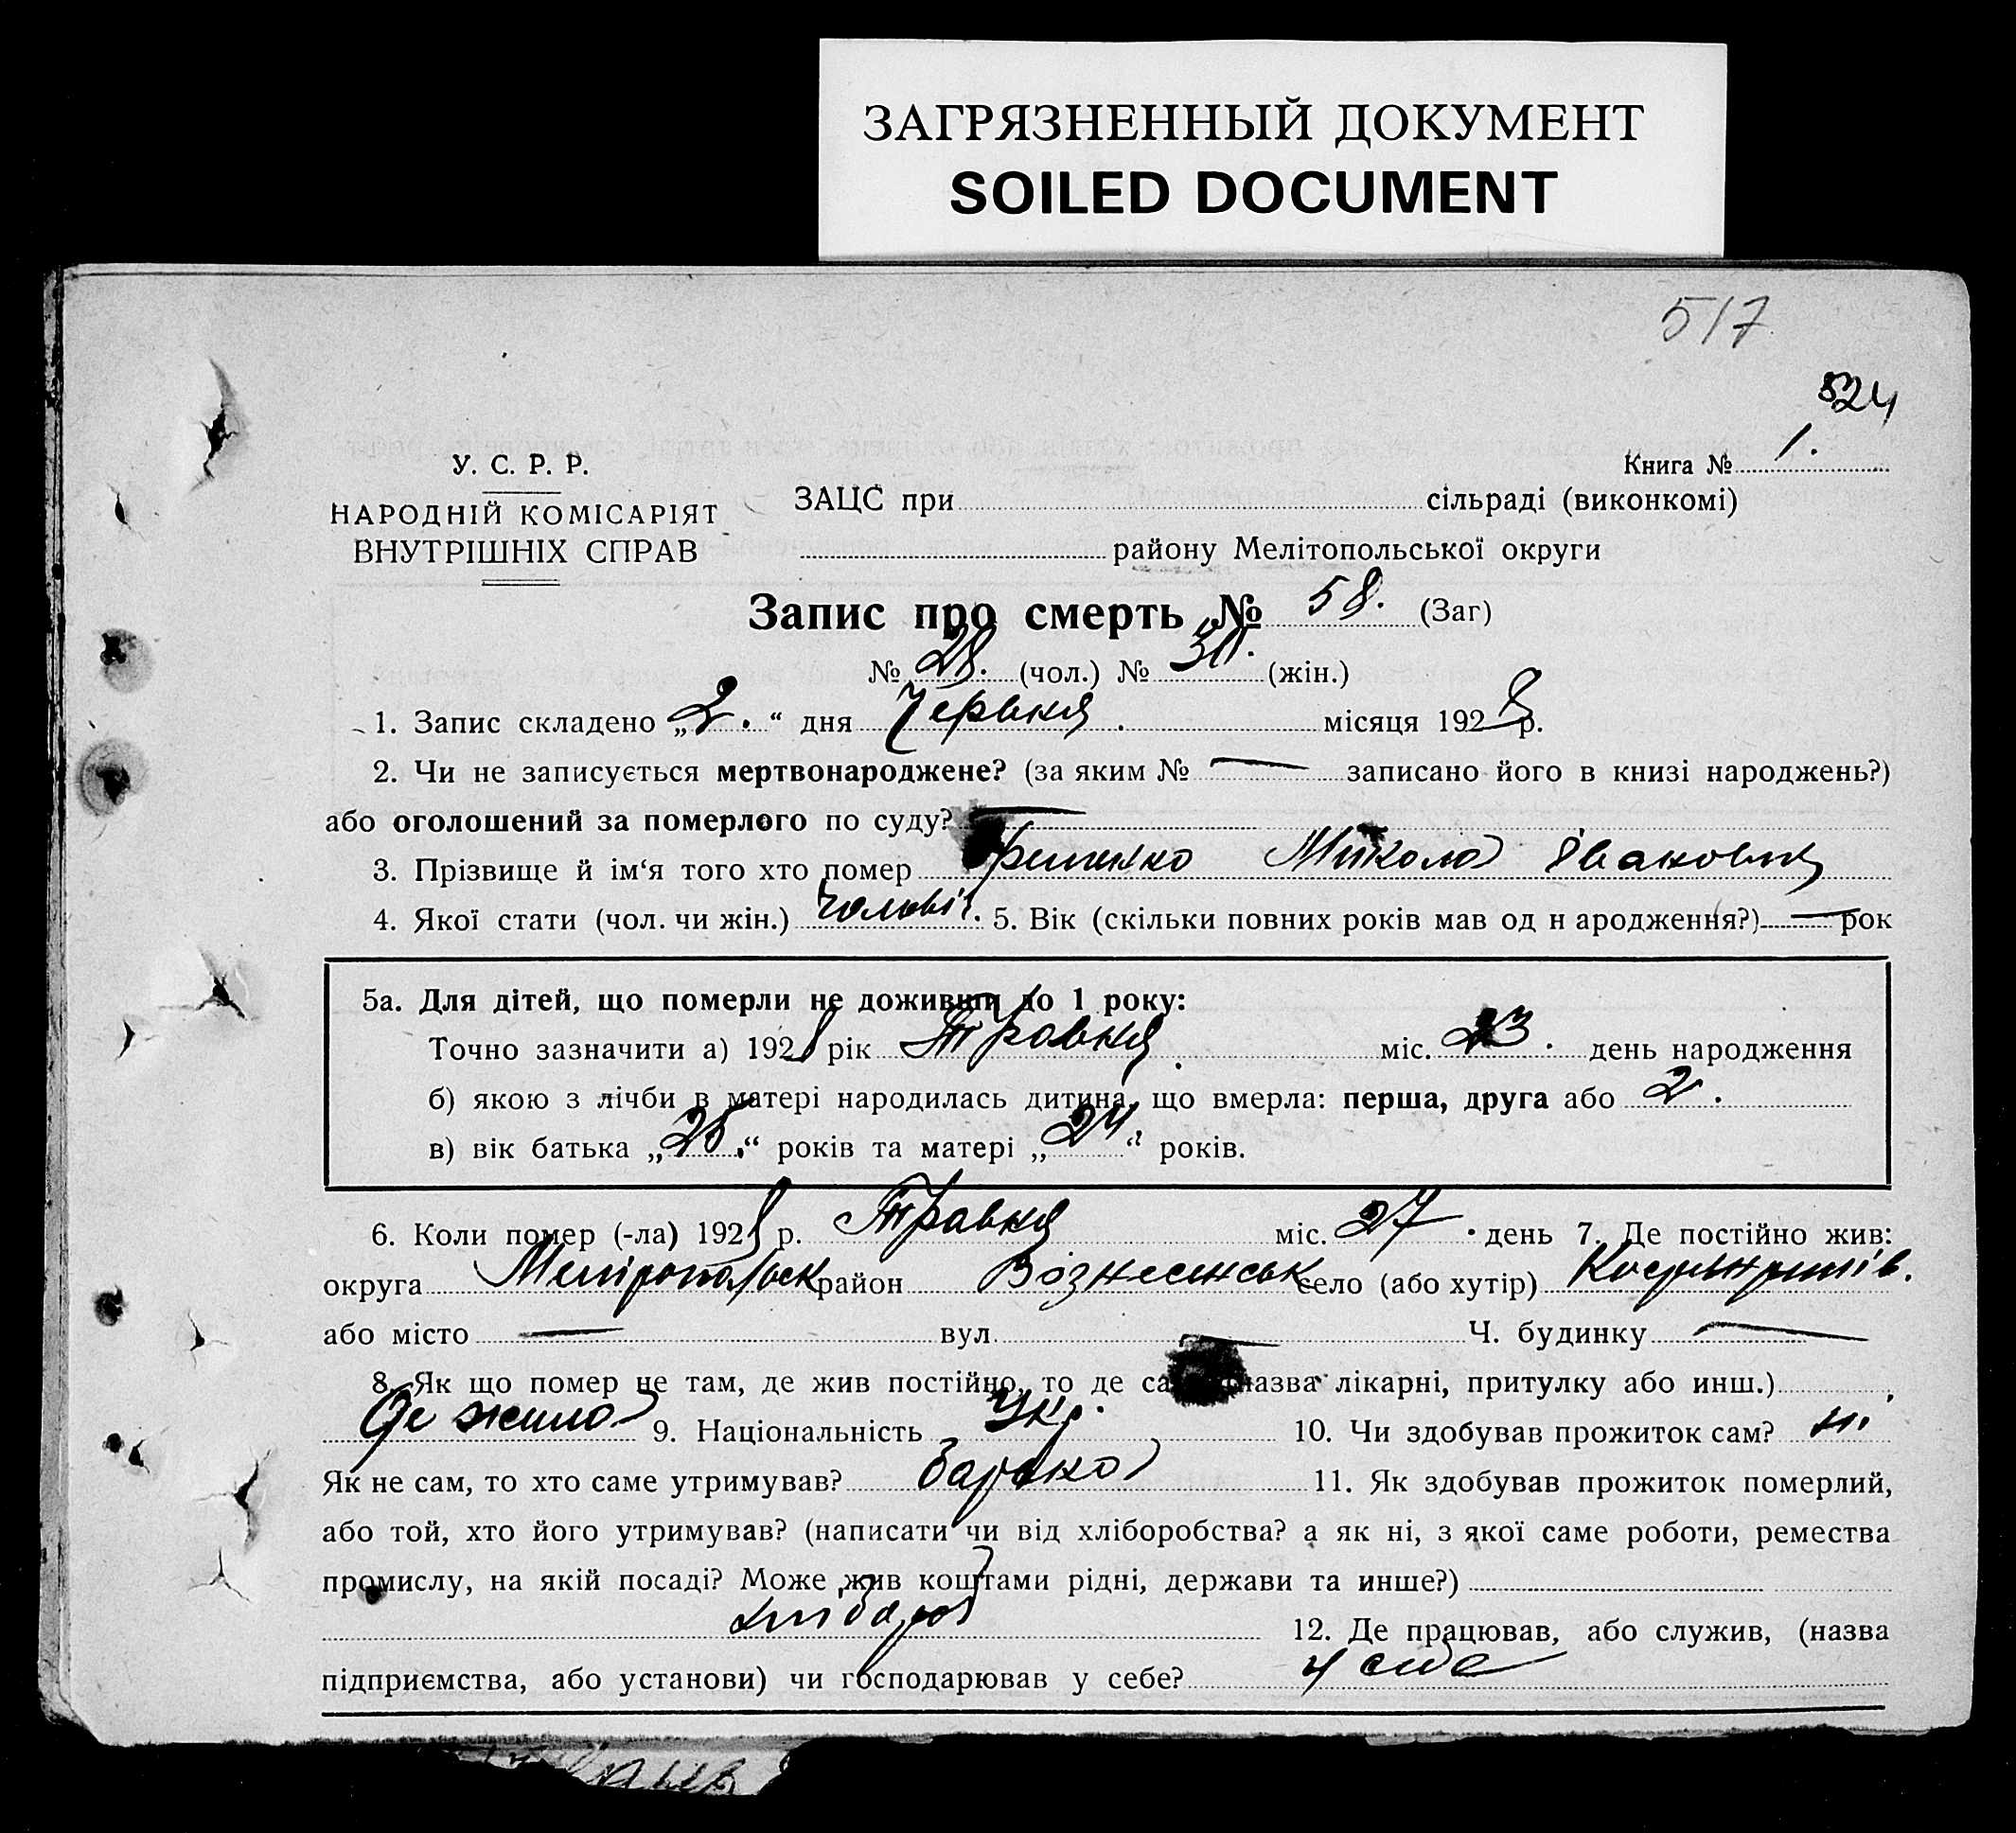 ЗАГРЯЗНЕННЫЙ ДОКУМЕНТ
SOILED DOCUMENT
517
524
У. С. Р. Р.
Книга № 1.
НАРОДНІЙ КОМІСАРІЯТ
ВНУТРІШНІХ СПРАВ
ЗАЦС при сільраді (виконкомі)
району Мелітопольської округи
Запис про смерть № 58. (Заг)
№ 28. (чол.) № 30. (жін.)
1. Запис складено „2.“ дня Червня. місяця 1928 р.
2. Чи не записується мертвонароджене? (за яким № — записано його в книзі народжень?)
або оголошений за померлого по суду? —
3. Прізвище й ім‘я того хто помер Микола Іванович
4. Якої стати (чол. чи жін.) чоловіч. 5. Вік (скільки повних років мав од н ародження?) — рок
5а. Для дітей, що померли не доживши до 1 року:
Точно зазначити а) 1928 рік Травня. міс. 23. день народження
б) якою з лічби в матері народилась дитина, що вмерла: перша, друга або 2.
в) вік батька „25.“ років та матері „24“ років.
6. Коли помер (-ла) 1928 р. Травня міс. 27. день 7. Де постійно жив:
округа Мелітопольськ район Вознесенськ село (або хутір)
або місто — вул. — Ч. будинку —
8. Як що помер не там, де жив постійно, то де са назва лікарні, притулку або инш.)
Де жило 9. Національність Укр. 10. Чи здобував прожиток сам? ні
Як не сам, то хто саме утримував? батько 11. Як здобував прожиток померлий,
або той, хто його утримував? (написати чи від хліборобства? а як ні, з якої саме роботи, ремества
промислу, на якій посаді? Може жив коштами рідні, держави та инше?)
хлібороб 12. Де працював, або служив, (назва
підприємства, або установи) чи господарював у себе? у себе